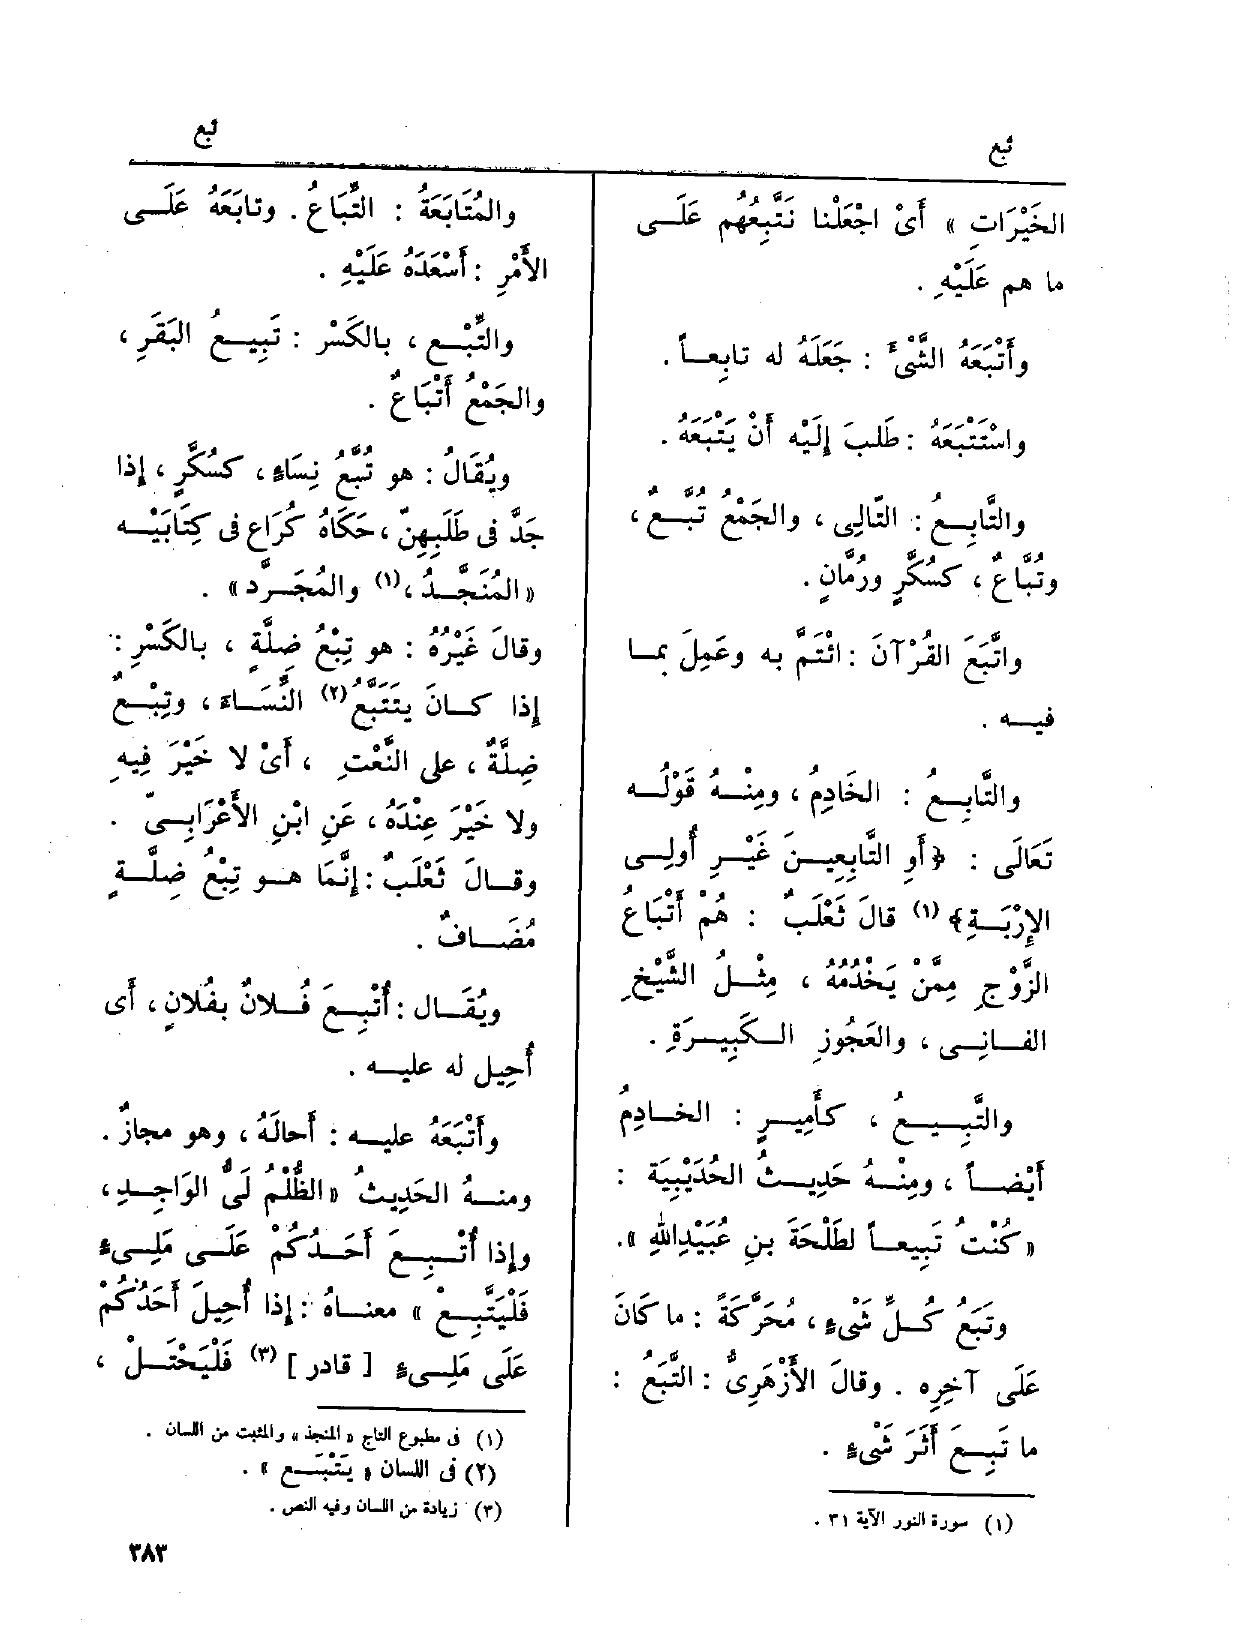 تبع
تبع
الخَيْرَاتِ » أَىْ اجْعَلْنا نَتَّبِعُهُم عَلَى
ما هم عَلَيْهِ .
وأَتْبَعَهُ الشَّىْءَ : جَعَلَهُ له تابِعاً .
واسْتَتْبَعَهُ : طَلبَ إِلَيْه أَنْ يَتْبَعَهُ .
والتَّابِعُ : التَّالِى ، والجَمْعُ تُبَّعٌ ،
وتُبَّاعٌ ، كسُكَّرٍ ورُمَّانٍ .
واتَّبَعَ القُرْآنَ : ائْتَمَّ به وعَمِلَ بما
فيه .
والتَّابِعُ : الخَادِمُ ، ومِنْهُ قَوْلُه
تَعَالَى : ﴿أَوِ التَّابِعِينَ غَيْرِ أُولِى
الإِرْبَةِ﴾ (١) قالَ ثَعْلَبٌ : هُمْ أَتْبَاعُ
الزَّوْجِ مِمَّنْ يَخْدُمُهُ ، مِثْلُ الشَّيْخِ
الفانِى ، والعَجُوزِ الكَبِيرَةِ .
والتَّبِيعُ ، كأَمِيرٍ : الخادِمُ
أَيْضاً ، ومِنْهُ حَدِيثُ الحُدَيْبِيَةِ :
«كُنْتُ تَبِيعاً لطَلْحَةَ بنِ عُبَيْدِاللهِ ».
وتَبَعُ كُلِّ شَىْءٍ ، مُحَرَّكَةً : ما كَانَ
عَلَى آخِرِه . وقالَ الأَزْهَرِىُّ : التَّبَعُ :
ما تَبِعَ أَثَرَ شَىْءٍ .
(١) سورة النور الآية ٣١ .
والمُتَابَعَةُ : التِّبَاعُ . وتابَعَهُ عَلَى
الأَمْرِ : أَسْعَدَهُ عَلَيْهِ .
والتِّبْع ، بالكَسْرِ : تَبِيعُ البَقَرِ ،
والجَمْعُ أَتْبَاعٌ .
ويُقَالُ : هو تُبَّعُ نِسَاءٍ ، كسُكَّرٍ ، إذا
جَدَّ فى طَلَبِهِنّ ، حَكَاهُ كُرَاع فى كِتَابَيْه
«المُنَجَّدُ ،(١) والمُجَرَّد» .
وقالَ غَيْرُهُ : هو تِبْعُ ضِلَّةٍ ، بالكَسْرِ :
إذا كانَ يتَتَبَّعُ(٢) النِّسَاءَ ، وتِبْعٌ
ضِلَّةٌ ، على النَّعْتِ ، أَىْ لا خَيْرَ فِيهِ
ولا خَيْرَ عِنْدَهُ ، عَنِ ابْنِ الأَعْرَابِىّ .
وقالَ ثَعْلَبٌ : إِنَّمَا هو تِبْعُ ضِلَّةٍ
مُضَافٌ .
ويُقَال : أُتْبِعَ فُلانٌ بفُلانٍ ، أَى
أُحِيل له عليه .
وأَتْبَعَهُ عليه : أَحالَهُ ، وهو مجازٌ .
ومنهُ الحَدِيثُ «الظُّلْمُ لَىُّ الوَاجِدِ ،
وإذا أُتْبِعَ أَحَدُكُمْ عَلَى مَلِىءٍ
فَلْيَتَّبِعْ » معناهُ : إذا أُحِيلَ أَحَدُكُمْ
عَلَى مَلِىءٍ [ قادر ] (٣) فَلْيَحْتَلْ ،
(١) فى مطبوع التاج « المنجذ » والمثبت من اللسان .
(٢) فى اللسان « يَتْبَع » .
(٣) زيادة من اللسان وفيه النص .
٣٨٣